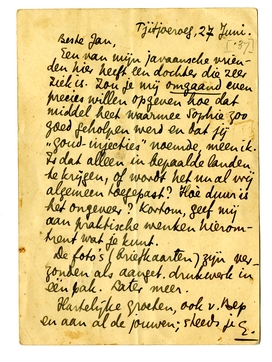 Tjitjoeroeg, 27 Juni.
[37]
Beste Jan,
Een van mijn javaansche vrien-
den hier heeft een dochter die zeer
ziek is. Zou je mij omgaand even
precies willen opgeven hoe dat
middel heet waarmee Sophie zoo
goed geholpen werd en dat jij
"goud-injecties" noemde, meen ik.
Is dat alleen in bepaalde landen
te krijgen, of wordt het nu vrij
algemeen toegepast? Hoe duur is
het ongeveer? Kortom, geef mij
aan praktische wenken hierom-
trent wat je kunt.
De foto's (briefkaarten) zijn ver-
zonden als aanget. drukwerk in
één pak. Later meer.
Hartelijke groeten, ook v. Bep
en aan al de jouwen; steeds je E.